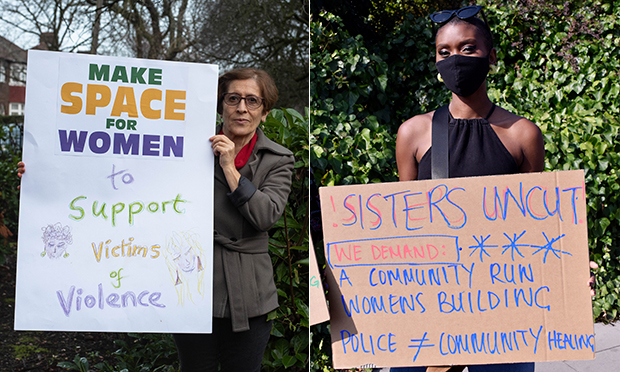 MAKE
SPACE
FOR
WOMEN
to
Support
Victims
of
Violence
! SISTERS UNCUT
WE DEMAND:
A COMMUNITY RUN
WOMENS BUILDING
POLICE ≠ COMMUNITY HEALING